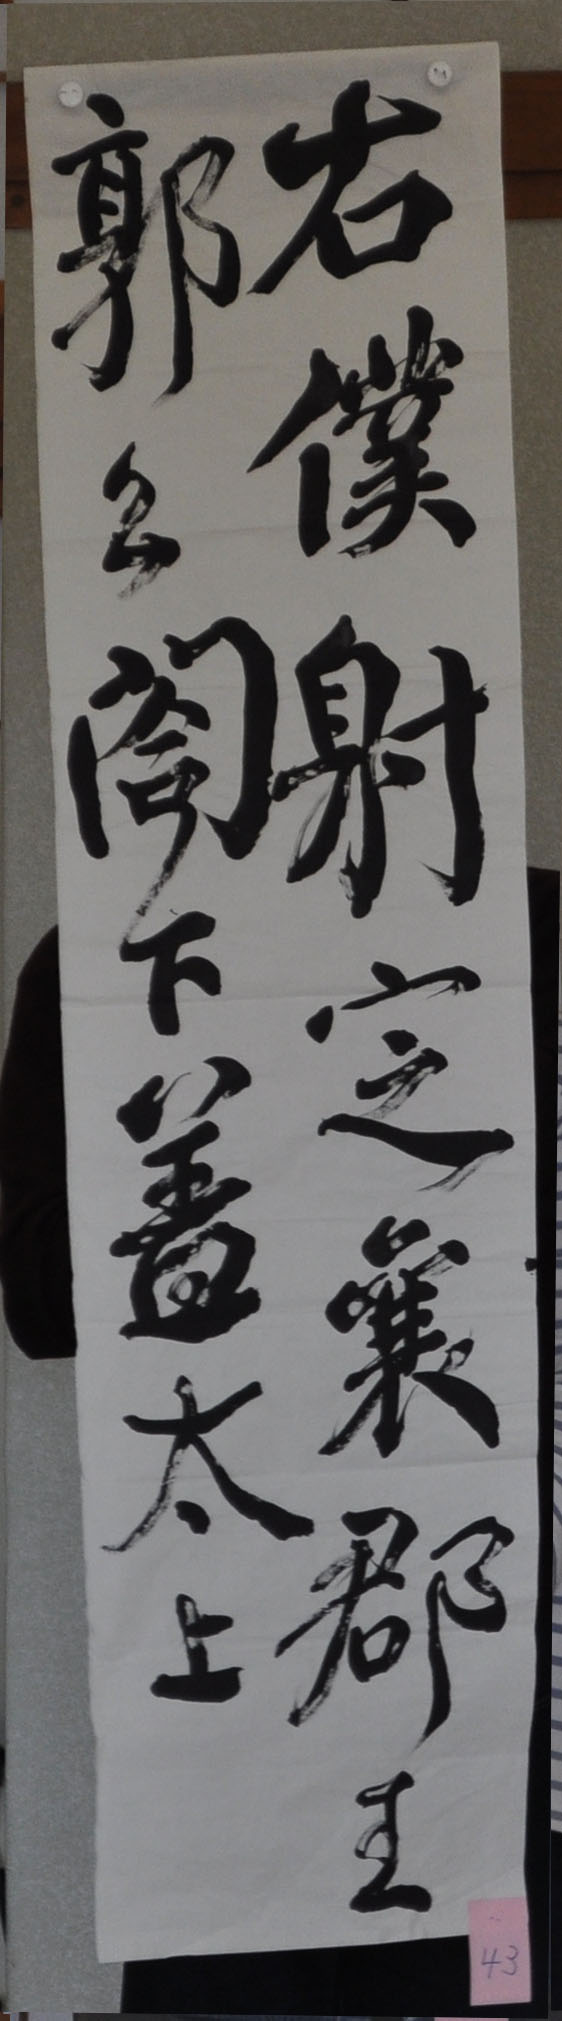 右僕射定襄郡王
郭公閤下蓋太上
43